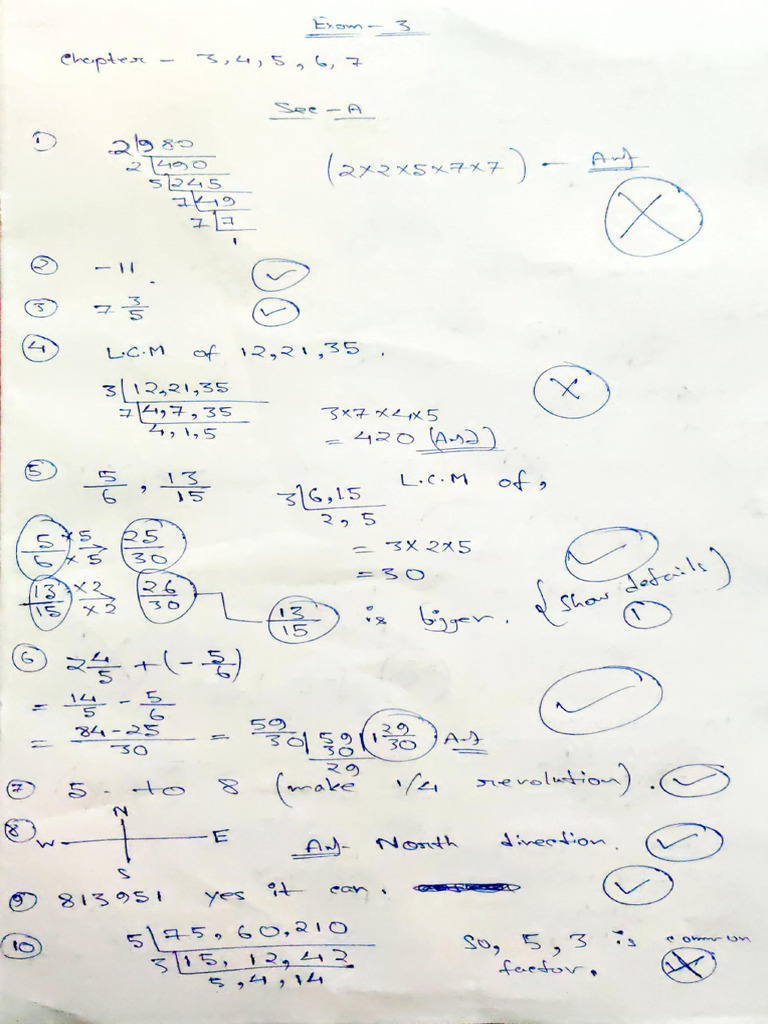 Exam - 3
Chapter - 3, 4, 5, 6, 7
Sec - A
① 2|980
2|490
5|245
7|49
7|7
1
(2×2×5×7×7) - Ans
② -11.
③ 7 3/5
④ L.C.M of 12, 21, 35.
3|12, 21, 35
7|4, 7, 35
4, 1, 5
3×7×4×5
= 420 (Ans)
⑤ 5/6, 13/15
L.C.M of,
3|6, 15
2, 5
= 3×2×5
= 30
5/6 ×5/×5 → 25/30
13/15 ×2/×2 → 26/30
13/15 is bigger. (Show details)
1
⑥ 2 4/5 + (- 5/6)
= 14/5 - 5/6
= 84-25/30 = 59/30
30|59|1
30
29
1 29/30 Ans
⑦ 5 - to 8 (make 1/4 revolution).
⑧ N
W E
S
Ans - North direction.
⑨ 813951 yes it can.
⑩ 5|75, 60, 210
3|15, 12, 42
5, 4, 14
So, 5, 3 is common
factor.